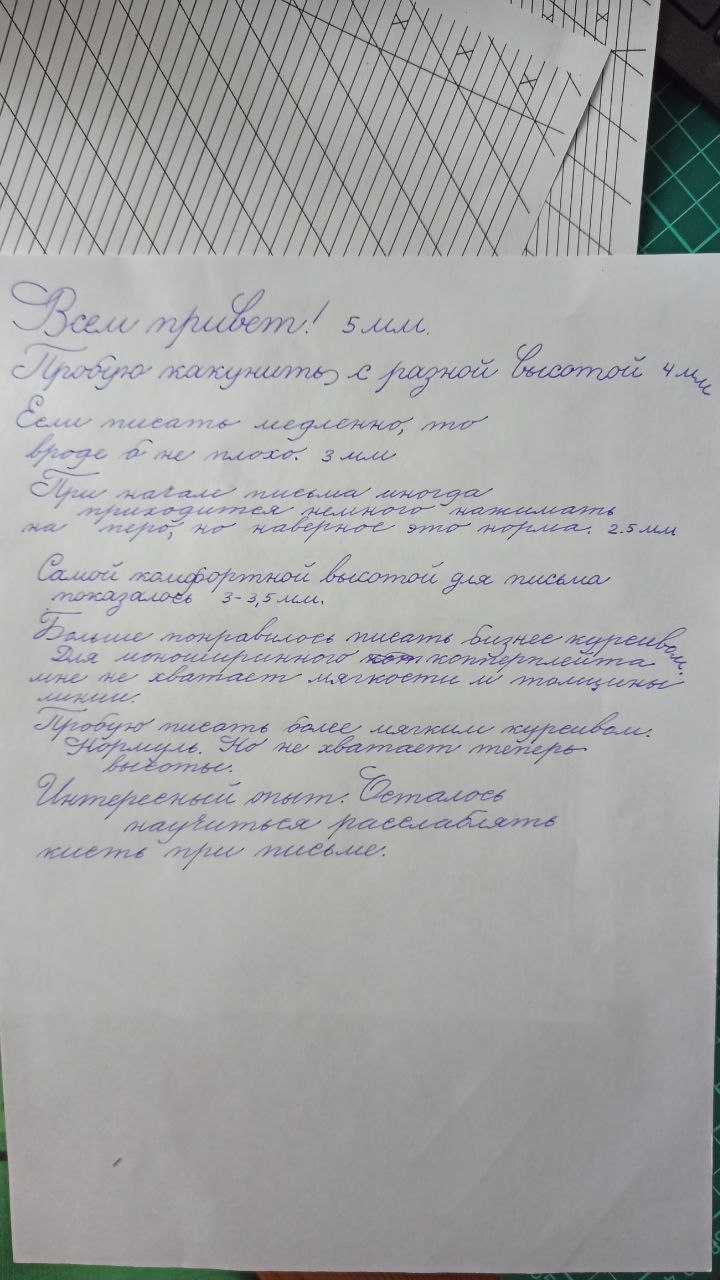 Всем привет! 5 мм.
Пробую какунить, с разной высотой 4 мм
Если писать медленно, то
вроде б не плохо. 3 мм
При начале письма иногда
приходится немного нажимать
на перо, но наверное это норма. 2.5 мм
Самой комфортной высотой для письма
показалось 3-3,5 мм.
Больше понравилось писать бизнес курсивом.
Для моноширинного копперплейта
мне не хватает мягкости и толщины
линии.
Пробую писать более мягким курсивом.
Нормуль. Но не хватает теперь
высоты.
Интересный опыт. Осталось
научиться расслаблять
кисть при письме.